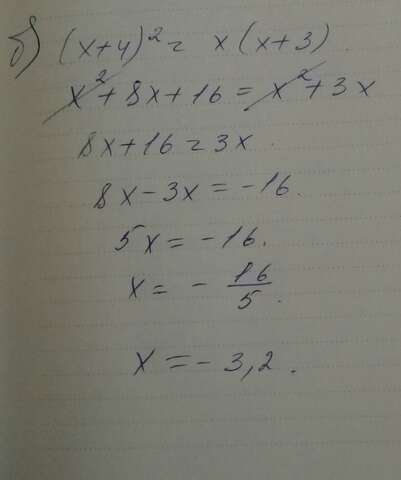 б) (x+4)² = x(x+3)
x² + 8x + 16 = x² + 3x
8x + 16 = 3x.
8x - 3x = -16.
5x = -16.
x = - 16/5.
x = -3,2.